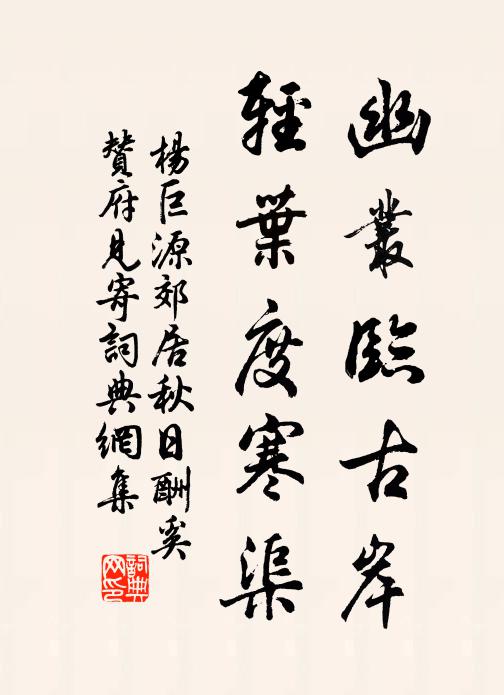 幽叢臨古岸
輕葉度寒渠
楊巨源郊居秋日酬奚
贊府見寄詞典網集
詞典網印